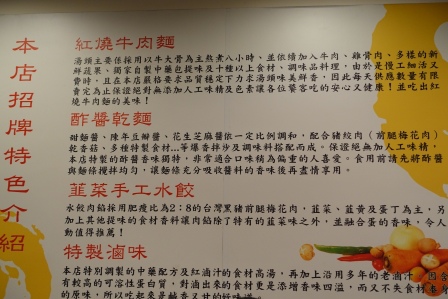 本店招牌特色介紹
紅燒牛肉麵
湯頭主要係採用以牛大骨為主熬煮八小時、並依續加入牛肉、雞骨肉、多樣的新
鮮蔬果、獨家自製中藥包提味及十種以上食材、調味品料理。由於是慢工細活又
費時、且在本店嚴格要求品質穩定下力求湯頭味美鮮香，因此每天供應數量有限
賣完為止保證絕對無添加人工味精及色素讓各位饕客吃的安心又健康！並吃出紅
燒牛肉麵的美味！
酢醬乾麵
甜麵醬、陳年豆瓣醬、花生芝麻醬依一定比例調和，配合豬絞肉（前腿梅花肉）
乾香菇、多種特製食材...等爆香拌炒及調味料搭配而成。保證絕無加人工味精，
本店特製的酢醬香味獨特，非常適合口味稍為偏重的人喜愛。食用前請先將酢醬
與麵條攪拌均勻，讓麵條充分吸收醬料的香味後再盡情享用。
韮菜手工水餃
水餃肉餡採用肥瘦比為2：8的台灣黑豬前腿梅花肉，韮菜、韮黃及蛋丁為主，另
加上其他提味的食材香料讓肉餡除了特有的韮菜味之外，並融合蛋的香味。令人
動值得推薦！
特製滷味
本店特別調製的中藥配方及紅滷汁的食材高湯，再加上沿用多年的老滷汁，因含
有較高的可溶性蛋白質，對滷出來的食材更是添增香味四溢，而又不失食材本
的原味，所以吃起來是鹹香又甘的好味道